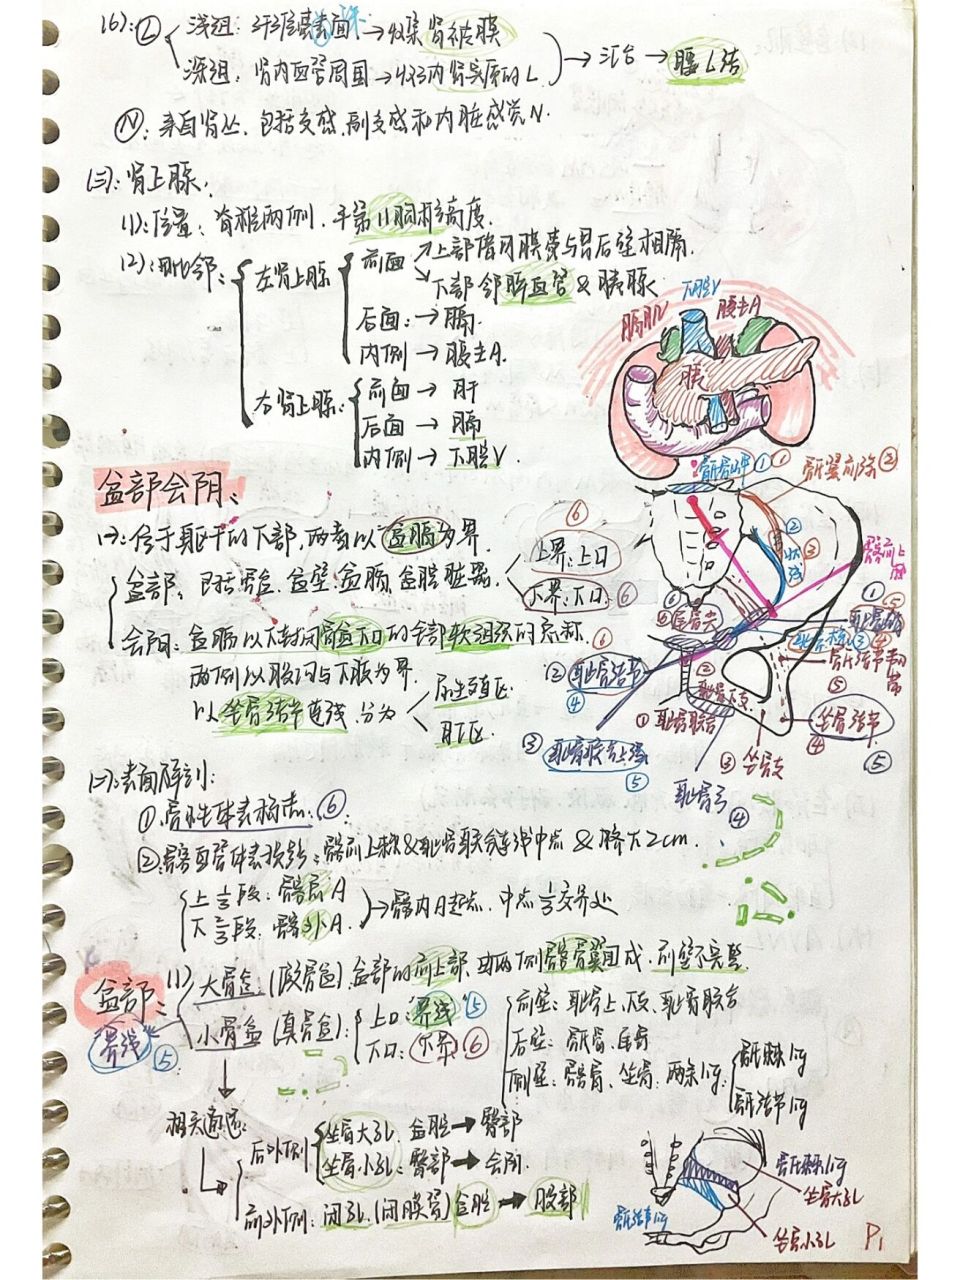 (6): L 浅组: 纤维囊表面, → 收集肾被膜
深组, 肾内血管周围 → 收纳肾实质的L. → 汇合 → 腰L结
N: 来自肾丛, 包括交感, 副交感和内脏感觉N.
(三): 肾上腺,
(1): 位置: 脊柱两侧, 平第11胸椎高度.
(2): 毗邻:
左肾上腺
前面 上部借网膜囊与胃后壁相隔
下部 邻脾血管 & 胰腺
后面: → 膈.
内侧 → 腹主A.
右肾上腺:
前面 → 肝
后面 → 膈
内侧 → 下腔V.
膈肌
下腔V
腹主A
胰
盆部会阴:
(一): 位于躯干的下部, 两者以盆膈为界.
盆部: 包括骨盆, 盆壁, 盆膈, 盆腔脏器
上界: 上口 ⑥
下界: 下口 ⑥
会阴: 盆膈以下封闭骨盆下口的全部软组织的总称.
两侧以股沟与下肢为界.
以坐骨结节连线, 分为
尿生殖区
肛区.
骶骨岬 ①
骶翼前缘 ②
弓状线 ③
髂前上棘
尾骨尖
② 耻骨结节 ④
耻骨下支
① 耻骨联合
③ 坐骨支
骶结节韧带 ⑤
坐骨结节 ④ ⑤
耻骨弓 ④
(二): 表面解剖:
①, 骨性体表标志. ⑥
②, 髂血管体表投影: 髂前上棘 & 耻骨联合连线中点 & 脐下2cm.
上1/3段: 髂总A
下2/3段: 髂外A
→ 髂内A起点, 中点1/3交界处
盆部:
(1) 大骨盆: (假骨盆) 盆部的前上部, 由两侧髂骨翼围成, 前壁不完整
小骨盆 (真骨盆):
上口: 界线 ⑤
下口: 下界 ⑥
"界线" ⑤
前壁: 耻骨上、下支、耻骨联合
后壁: 骶骨、尾骨
侧壁: 髂骨、坐骨、两条lig:
骶棘lig
骶结节lig
相关通道:
后外侧
坐骨大孔: 盆腔 → 臀部
坐骨小孔: 臀部 → 会阴.
前外侧: 闭孔 (闭膜管) 盆腔 → 股部
骶棘lig
坐骨大孔
坐骨小孔
骶结节lig
P1